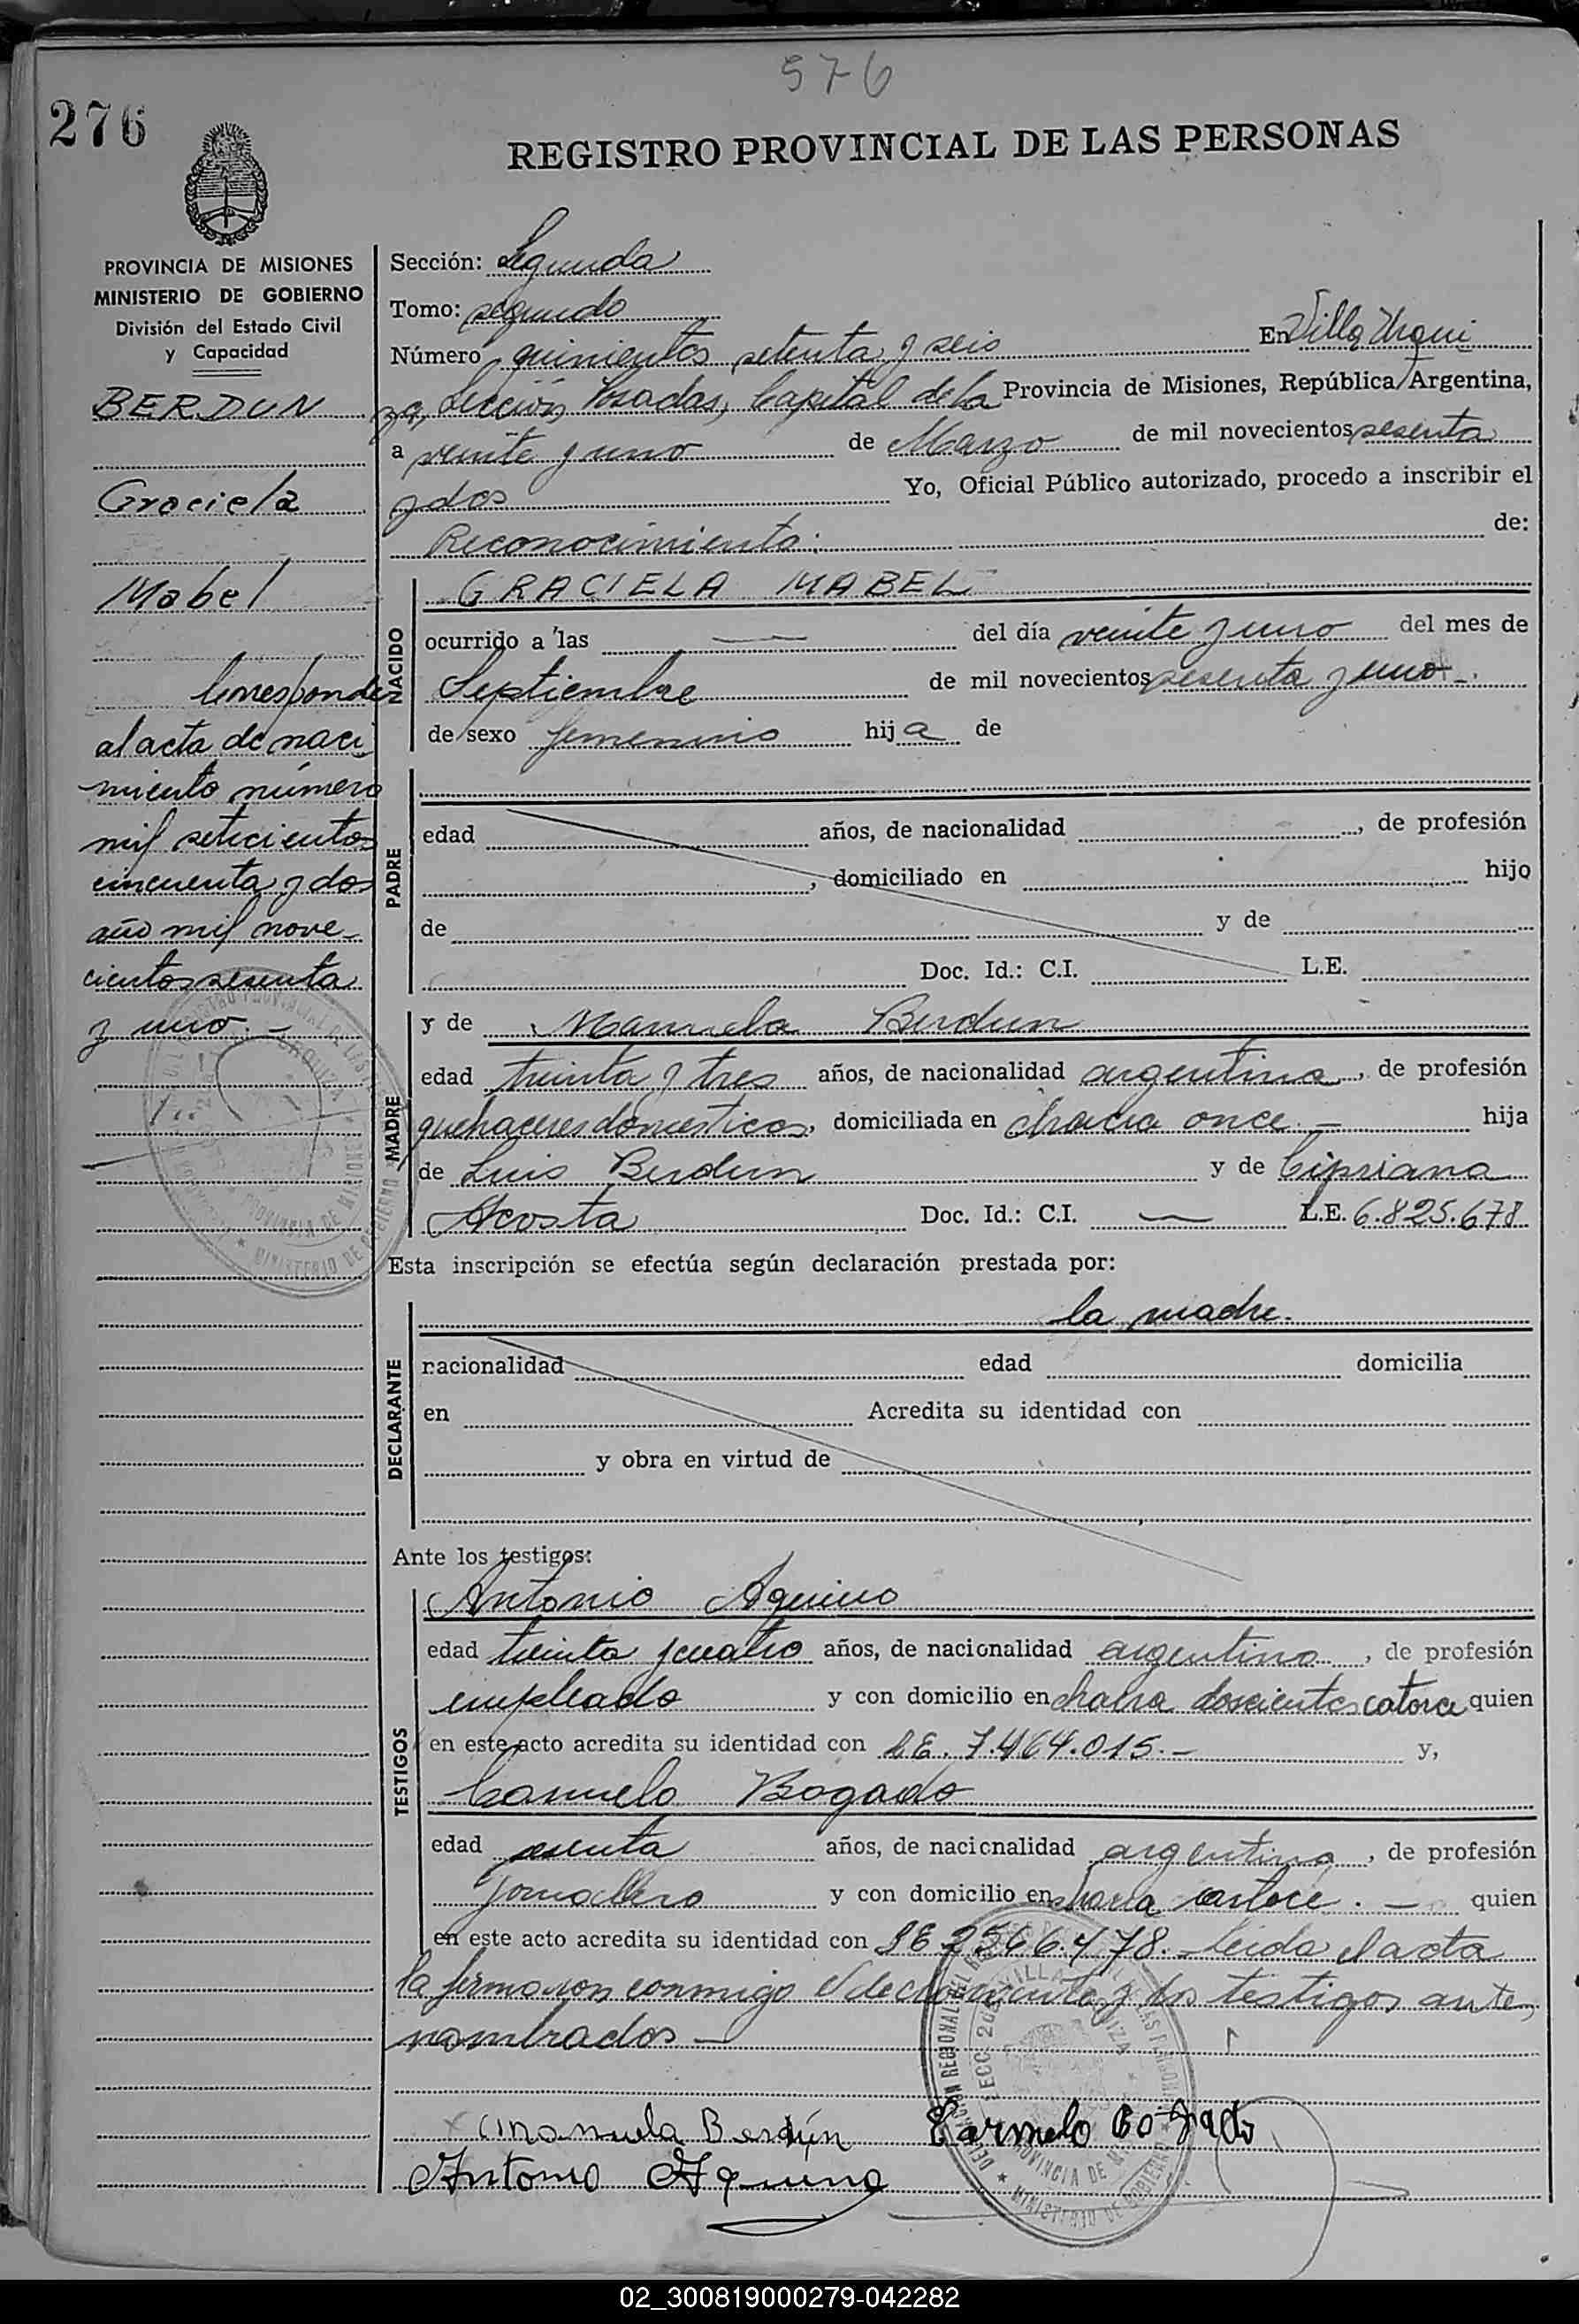 576
276
REGISTRO PROVINCIAL DE LAS PERSONAS
PROVINCIA DE MISIONES
MINISTERIO DE GOBIERNO
División del Estado Civil
y Capacidad
BERDUN
Graciela
Mabel
Corresponde
al acta de naci
miento número
mil seticientos
cincuenta y dos
año mil nove-
cientos sesenta
y uno.-
Sección: Segunda
Tomo: segundo
Número quinientos setenta y seis En Villa Urqui
za, Sección, Posadas, Capital de la Provincia de Misiones, República Argentina,
a veinte y uno de Marzo de mil novecientos sesenta
y dos Yo, Oficial Público autorizado, procedo a inscribir el
Reconocimiento: de:
NACIDO
GRACIELA MABEL
ocurrido a las — del día veinte y uno del mes de
Septiembre de mil novecientos sesenta y uno-.
de sexo femenino hija de
PADRE
edad años, de nacionalidad , de profesión
, domiciliado en hijo
de y de
Doc. Id.: C.I. L.E.
MADRE
y de Manuela Berdun
edad treinta y tres años, de nacionalidad argentina, de profesión
quehaceres domesticos, domiciliada en chacra once.- hija
de Luis Berdun y de Cipriana
Acosta Doc. Id.: C.I. — L.E. 6.825.678
Esta inscripción se efectúa según declaración prestada por:
la madre.
DECLARANTE
nacionalidad edad domicilia
en Acredita su identidad con
y obra en virtud de
Ante los testigos:
TESTIGOS
Antonio Aquino
edad treinta y cuatro años, de nacionalidad argentino, de profesión
empleado y con domicilio en chacra doscientos catorce quien
en este acto acredita su identidad con L.E. 7.464.015.- y,
Carmelo Bogado
edad sesenta años, de nacionalidad argentino, de profesión
jornalero y con domicilio en chacra catorce.- quien
en este acto acredita su identidad con LE 2566.478. Leida el acta
la firmaron conmigo el declarante y los testigos ante
nombrados-
Manuela Berdún Carmelo Bogado
Antonio Aquino
02_300819000279-042282